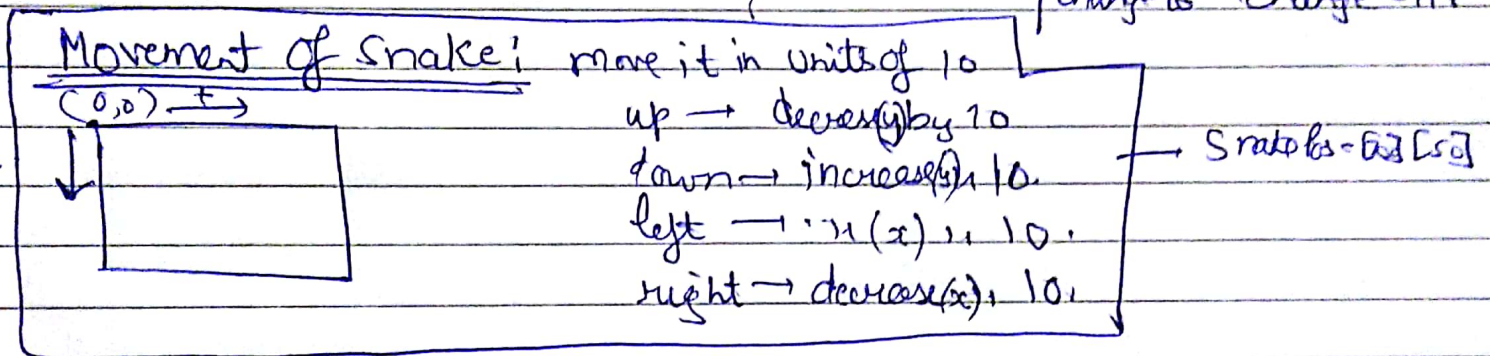 Movement of Snake: move it in units of 10
(0,0) +
up → decres(y) by 10
down → increase(y) ,, 10.
left → ,, (x) ,, 10.
right → decrease(x), 10.